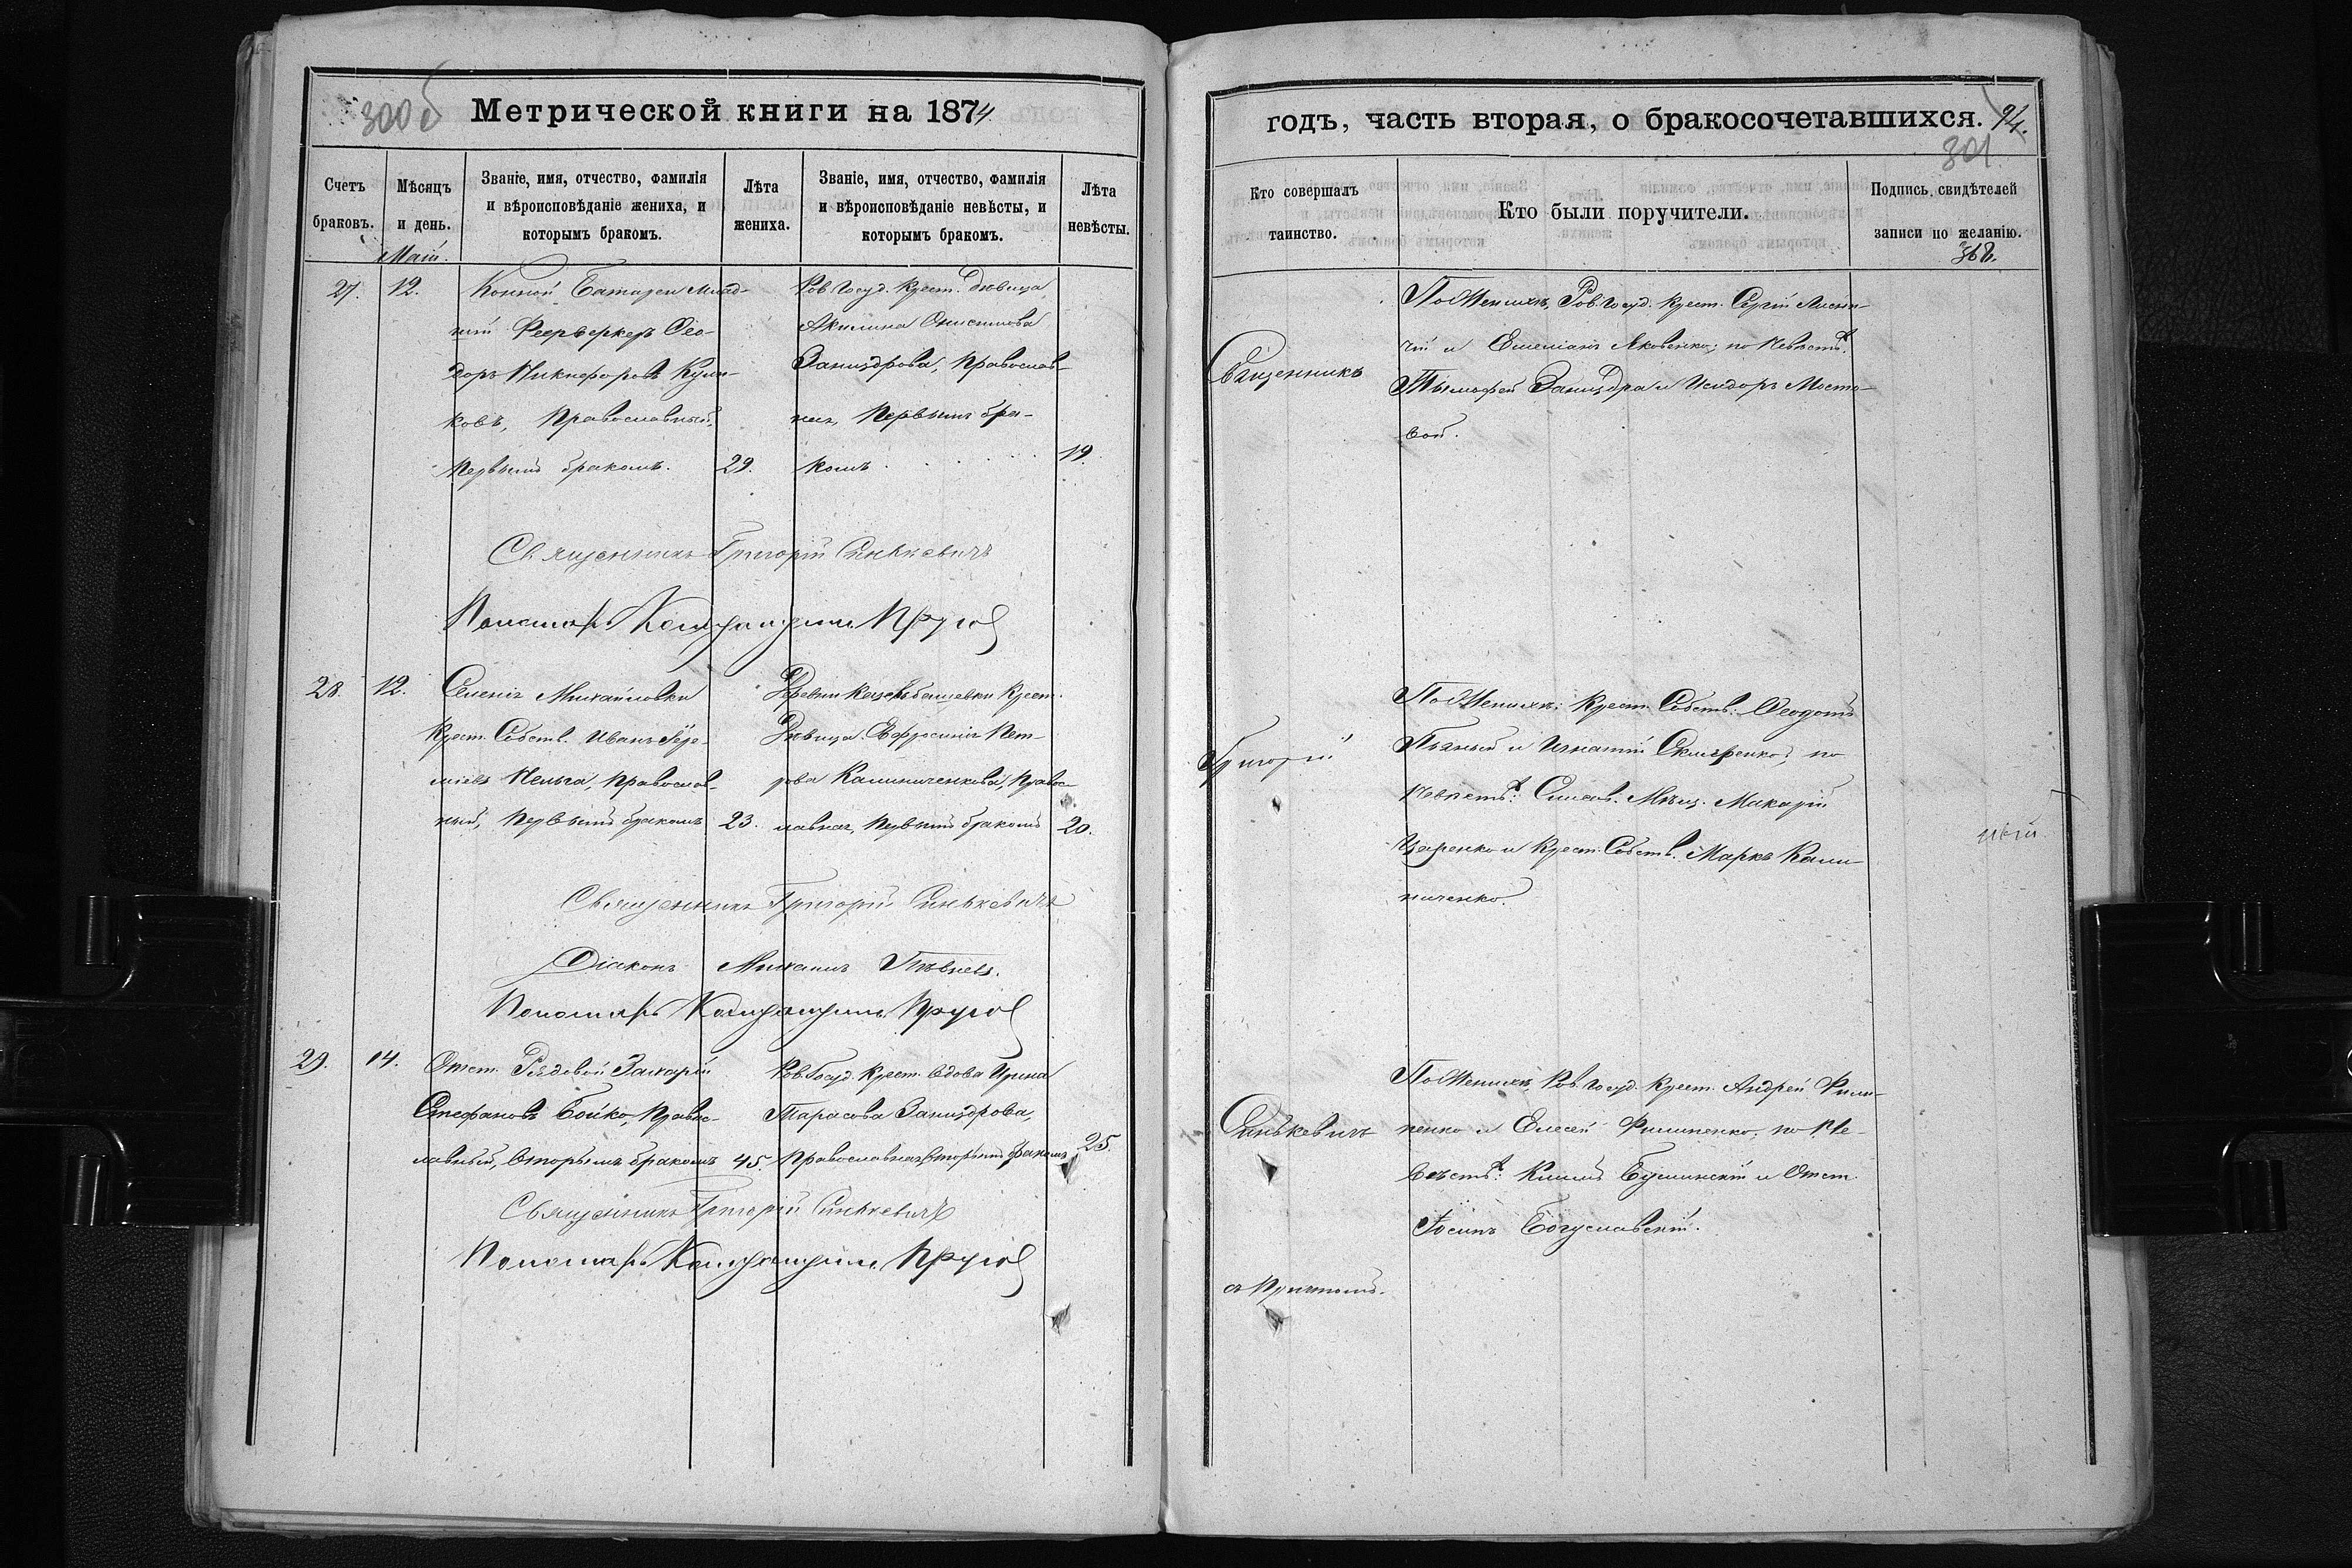 300 б Метрической книги на 1874
Счетъ браковъ.
Мѣсяцъ и день.
Званіе, имя, отчество, фамилія и вѣроисповѣданіе жениха, и которымъ бракомъ.
Лѣта жениха.
Званіе, имя, отчество, фамилія и вѣроисповѣданіе невѣсты, и которымъ бракомъ.
Лѣта невѣсты.
Маій.
27. 12.
Конной Батареи Млад-
шій Феерверкеръ Ѳео-
доръ Никифоровъ Кули-
ковъ, Православный,
Первымъ бракомъ. 29.
Ров. Госуд. Крест. дѣвица
Акилина Онисимова
Заниздрова, Православ-
ная, Первымъ бра-
комъ 19.
Священникъ Григорій Синькевичъ
Пономарь
28. 12.
Селенія Михайловки
Крест. Собств. Иванъ Ере-
міевъ Пельга, Православ-
ный, Первымъ бракомъ 23.
Крест.
Дѣвица Евфросинія Пет-
рова Калиниченкова, Правос-
лавная, Первымъ бракомъ 20.
Священникъ Григорій Синькевичъ
Діаконъ Михаилъ Пѣвневъ.
Пономарь
29. 14.
Отст. Рядовой Захарій
Стефановъ Бойко, Правос-
лавный, Вторымъ бракомъ 45.
Ров. Госуд. Крест. вдова Ирина
Тарасова Заниздрова,
Православная, Вторымъ бракомъ 25.
Священникъ Григорій Синькевичъ
Пономарь
годъ, часть вторая, о бракосочетавшихся. 94.
301
Кто совершалъ таинство.
Кто были поручители.
Подпись свидѣтелей записи по желанію.
Священникъ
Григорій
Синькевичъ
съ Причтомъ.
По Женихѣ, Ров. Госуд. Крест. Сергій
и Емеліанъ Яковенко; по Невѣстѣ:
Тимофей Заниздра и Исидоръ Мосто-
вой.
По Женихѣ: Крест. Собств. Ѳеодотъ
Пьяный и Игнатій; по
Невѣстѣ: Мѣщ. Макарій
и Крест. Собств. Маркъ Кали-
ниченко.
По Женихѣ, Ров. Госуд. Крест. Андрей Фили-
пенко и Елисей Филипенко; по Не-
вѣстѣ: Климъ и Отст.
Іосифъ Богуславскій.